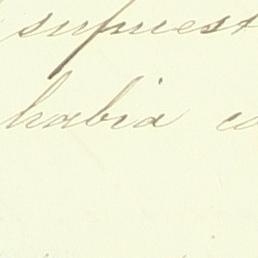 supuest
habia co